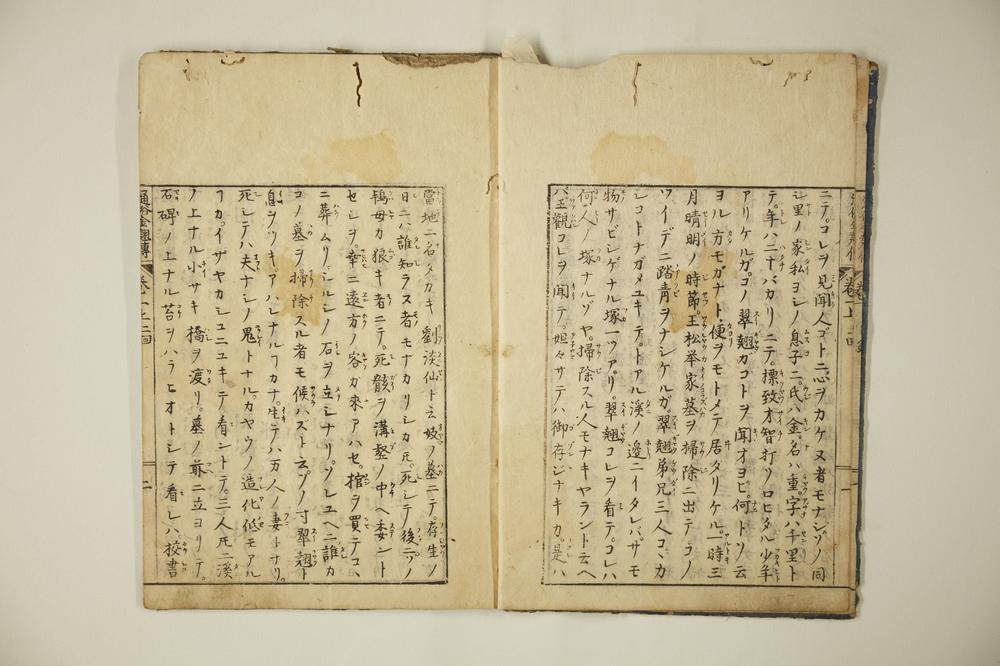 ニテ。コレヲ見聞人ゴトニ心ヲカケヌ者モナシ。ソノ同
斗里ノ家私ヨシノ息子ニ。氏ハ金。名ハ重。字ハ千里ト
テ。年ハ二十バカリニテ。標致才智打ソロヒタル少年
アリケルガ。コノ翠翹ガコトヲ聞オヨビ。何トソ云
ヨル方モガナト。便ヲモトメテ居タリケル。一時三
月晴明ノ時節。王松挙家墓ヲ掃除ニ出テ。コノ
ツイデニ踏青ヲナシケルガ。翠翹弟兄三人コヽカ
シコトナガメユキテ。トアル溪ノ邉ニイタレバ。サモ
物サビシゲナル塚一ツアリ。翠翹コレヲ看テ。コレハ
何人ノ塚ナルゾヤ。掃除スル人モナキヤラント云ヘ
バ。王觀コレヲ聞テ。姐々サテハ御存ジナキカ。是ハ
當地ニ名タカキ劉淡仙ト云妓ノ墓ニテ。存生ノ
日ニハ誰知ラヌ者モナカリシカ𪜈。死シテ後ニソノ
鴇母カ狼キ者ニテ。死骸ヲ溝壑ノ中ヘ委ント
セシヲ。幸ニ遠方ノ客ガ來アハセ。棺ヲ買テコヽ
ニ葬ムリ。シルシノ石ヲ立シナリ。ソレユヘニ誰カ
コノ墓ヲ掃除スル者モ候ハズト云。ソノ寸翠翹ト
息ヲツキ。アハレナルフカナ。生テハ万人ノ妻トナリ。
死シテハ夫ナシノ鬼トナル。カヤウノ造化低モアル
フカ。イザヤカシコニユキテ看ントテ。三人𪜈ニ溪
ノ上ナル小サキ橋ヲ渡リ。墓ノ前ニ立ヨリテ。
石碍ノ上ナル苔ヲハラヒオトシテ看レハ。挍書
通俗金翹傳 卷一上二回 二